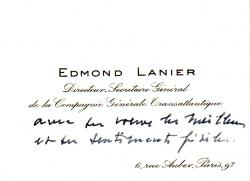 EDMOND LANIER
Directeur-Secrétaire Général
de la Compagnie Générale Transatlantique
avec ses voeux les meilleurs
et ses sentiments fidèles.
6, rue Auber, Paris, 9e